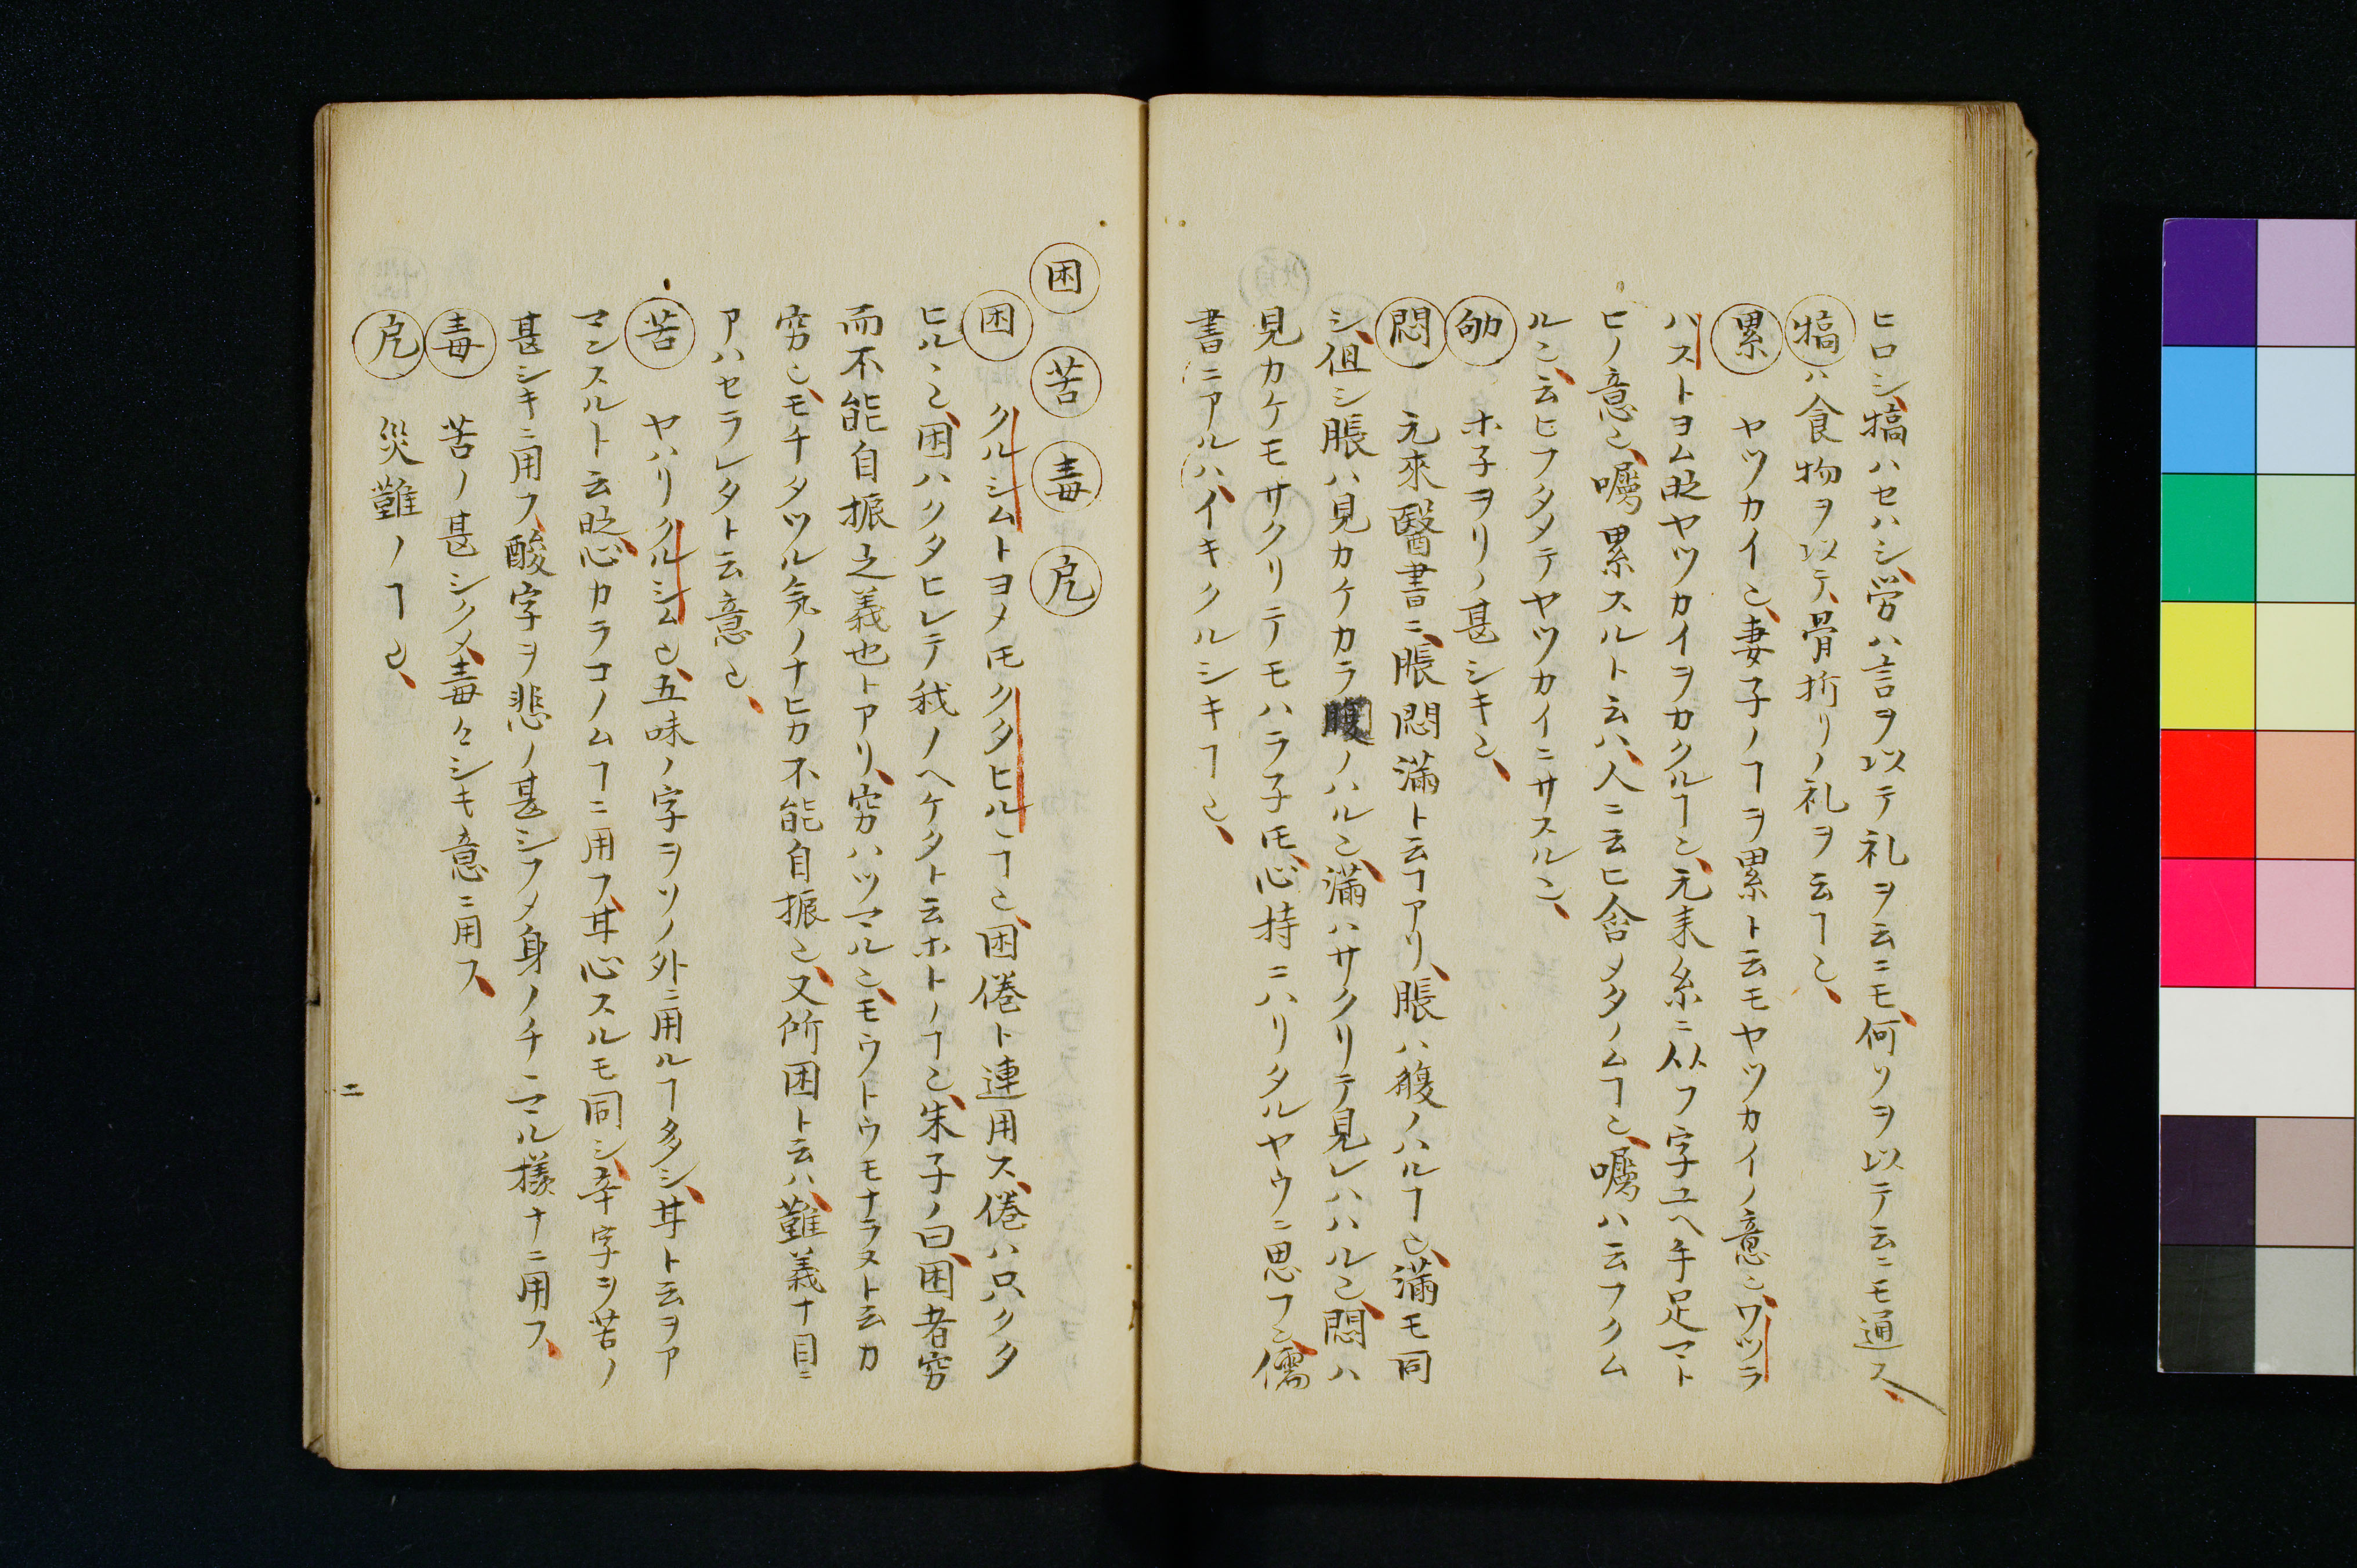 ヒロシ、犒ハセハシ、労ハ言ヲ以テ礼ヲ云ニモ、何ソヲ以テ云ニモ通ス、
犒ハ食物ヲ以テ、骨折リノ礼ヲ云ヿ也、
累 ヤツカイ也、妻子ノヿヲ累ト云モヤツカイノ意也、ワツラ
ハストヨム時ヤツカイヲカクルヿ也、元来糸ニ从フ字ユヘ手足マト
ヒノ意也、囑累スルト云ハ、人ニ云ヒ含メタノムヿ也、囑ハ云フクム
ル也、云ヒフタメテヤツカイニサスル也、
劬 ホ子ヲリノ甚シキ也、
悶 元來醫書ニ、脹悶滿ト云ヿアリ、脹ハ腹ノハルヿ也、滿モ同
シ、但シ脹ハ見カケカラ腹ノハル也、滿ハサクリテ見レハハル也、悶ハ
見カケモサクリテモハラ子𪜈、心持ニハリタルヤウニ思フ也、儒
書ニアルハ、イキクルシキヿ也、
困 苦 毒 戹
困 クルシムトヨメ𪜈クタヒルヽヿ也、困倦ト連用ス、倦ハ只クタ
ヒルヽ也、困ハクタヒレテ我ノヘケタト云ホトノヿ也、朱子ノ曰、困者窮
而不能自振之義也トアリ、窮ハツマル也、モウトウモナラヌト云カ
窮也、モチタツル気ノナヒカ不能自振也、又所困ト云ハ、難義ナ目ニ
アハセラレタト云意也、
苦 ヤハリクルシム也、五味ノ字ヲソノ外ニ用ルヿ多シ、甘ト云ヲア
マンスルト云時、心カラコノムヿニ用フ、甘心スルモ同シ、辛字ヲ苦ノ
甚シキニ用フ、酸字ヲ悲ノ甚シフメ身ノチヾマル様ナニ用フ、
毒 苦ノ甚シクメ、毒々シキ意ニ用フ、
戹 災難ノヿ也、
二